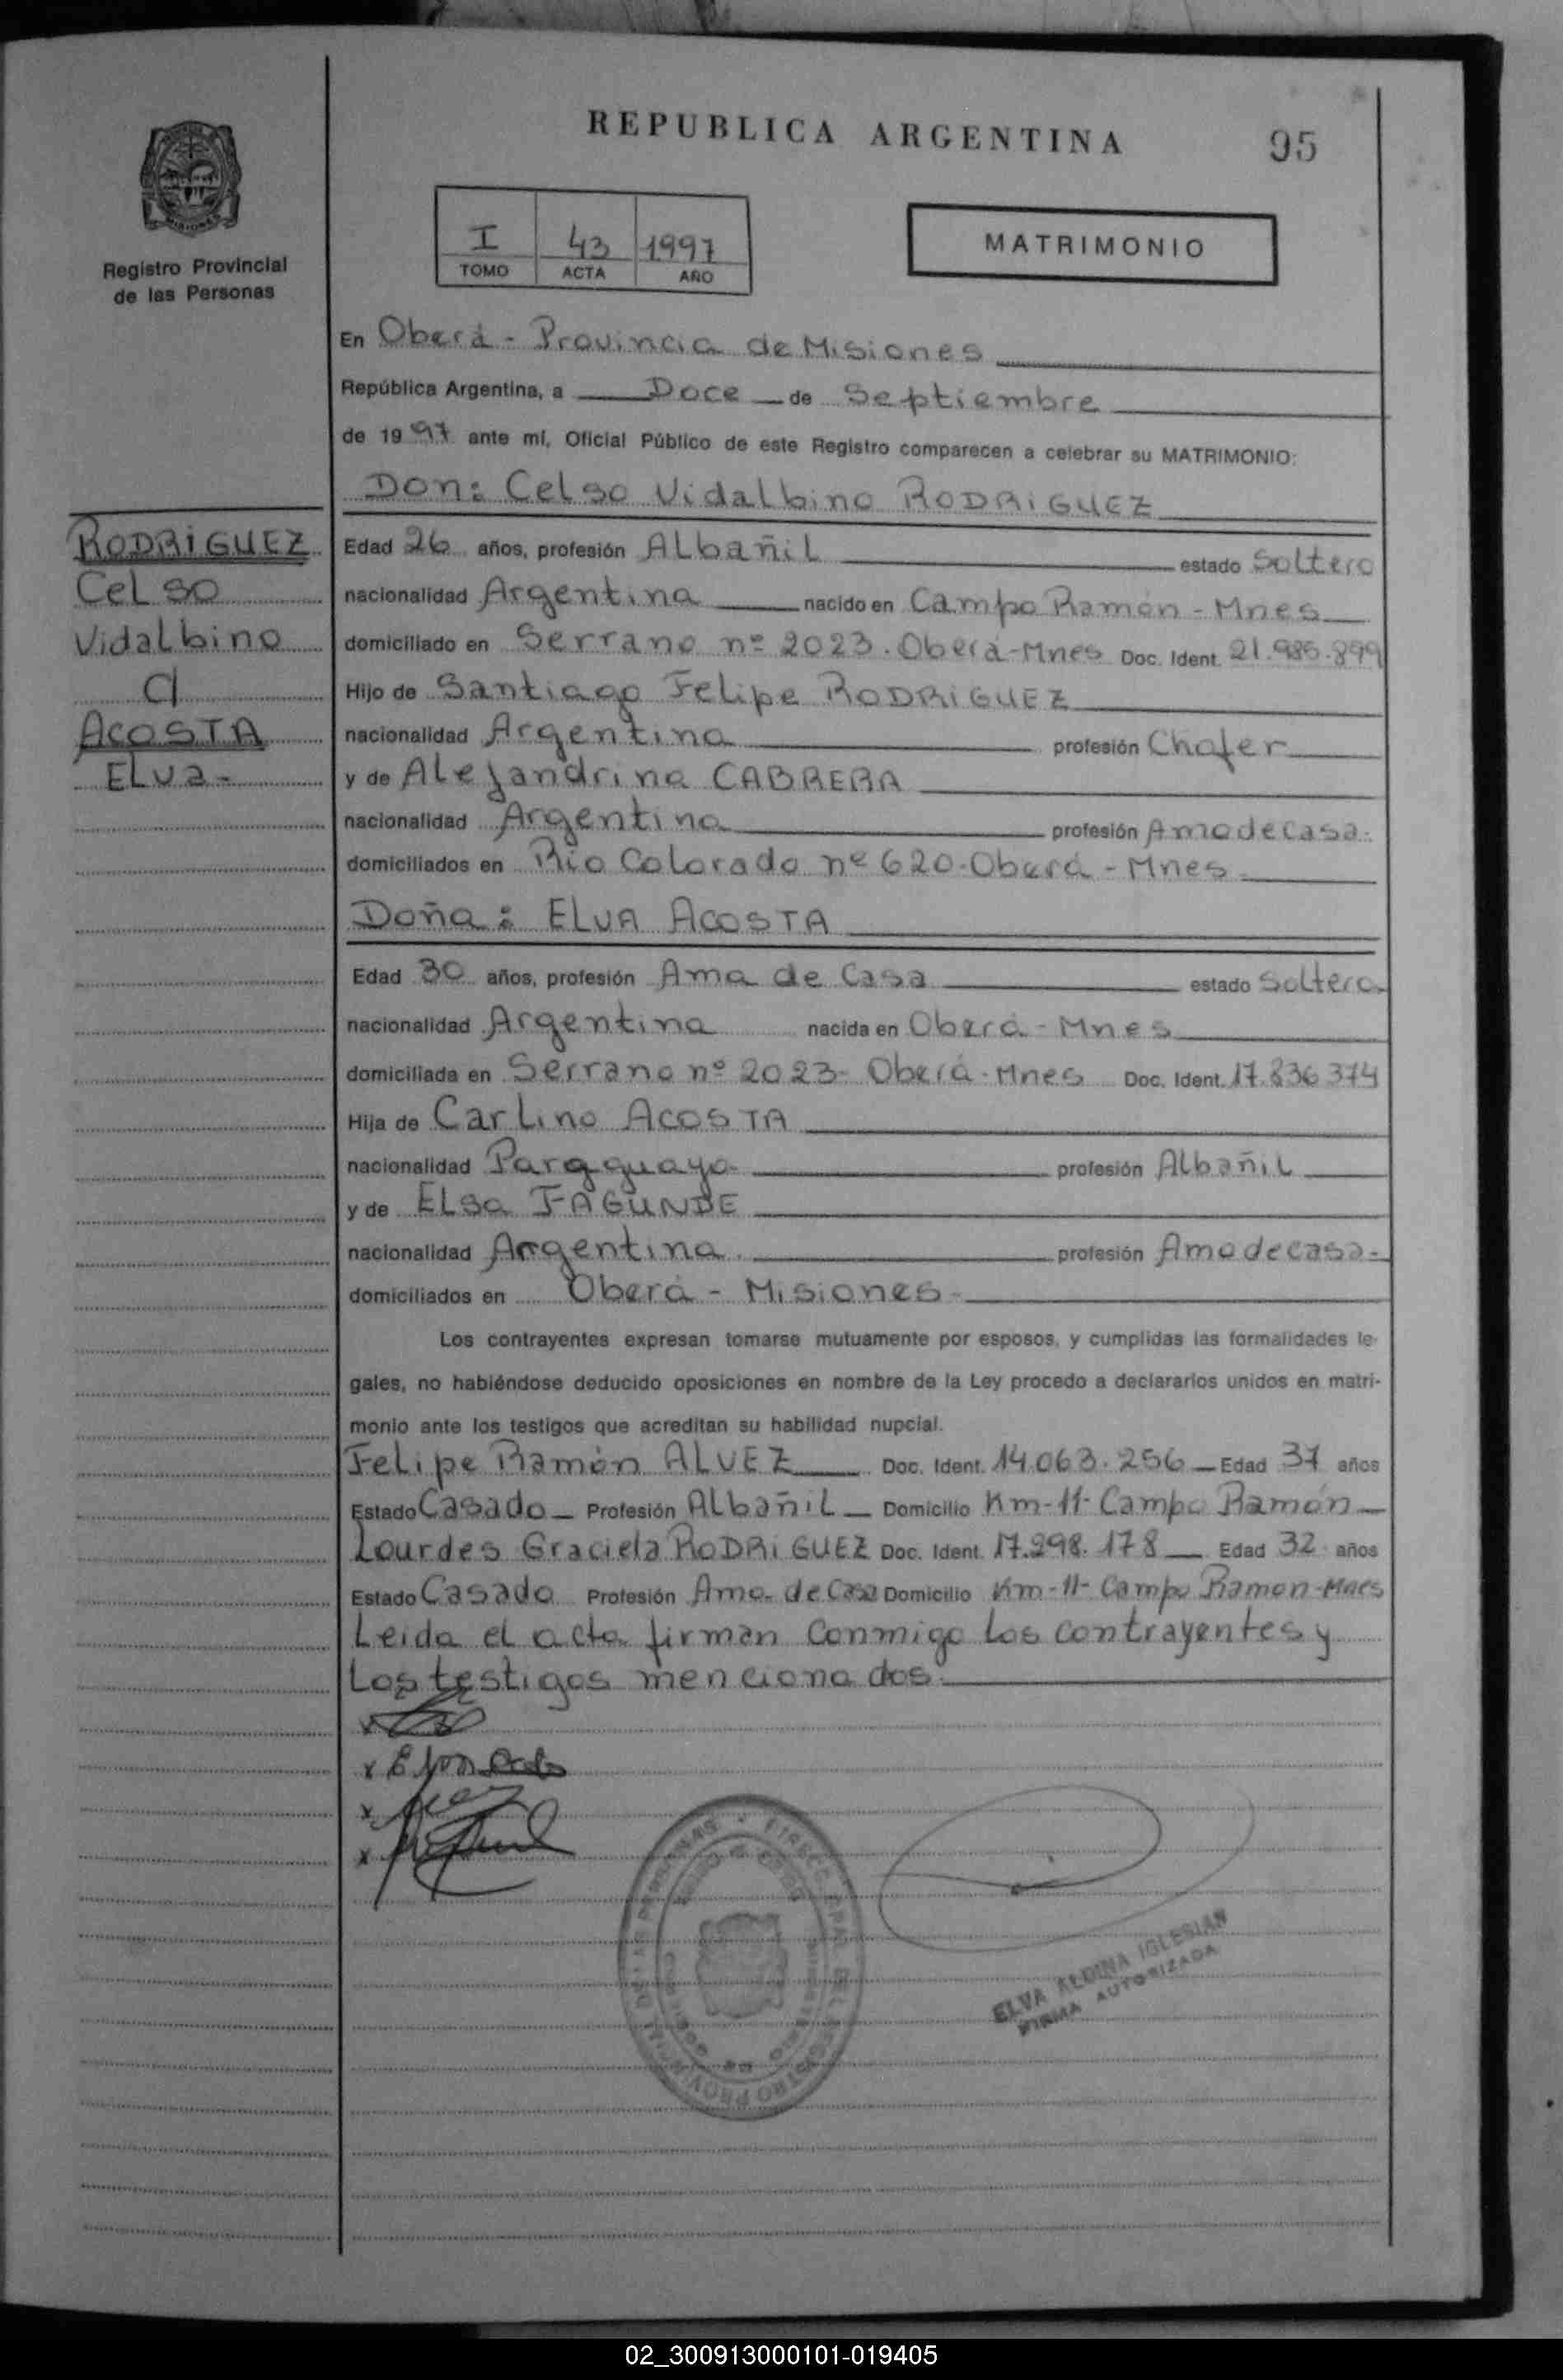 REPUBLICA ARGENTINA
95
Registro Provincial
de las Personas
I 43 1997
TOMO ACTA AÑO
MATRIMONIO
En Oberá - Provincia de Misiones
República Argentina, a Doce de Septiembre
de 1997 ante mí, Oficial Público de este Registro comparecen a celebrar su MATRIMONIO:
Don: Celso Vidalbino RODRIGUEZ
RODRIGUEZ
Celso
Vidalbino
c/
ACOSTA
Elva-
Edad 26 años, profesión Albañil estado Soltero
nacionalidad Argentina nacido en Campo Ramón - Mnes
domiciliado en Serrano nº 2023. Oberá-Mnes Doc. Ident. 21.985.899
Hijo de Santiago Felipe RODRIGUEZ
nacionalidad Argentina profesión Chofer
y de Alejandrina CABRERA
nacionalidad Argentina profesión Ama de casa.
domiciliados en Rio Colorado nº 620-Oberá - Mnes.
Doña: ELVA ACOSTA
Edad 30 años, profesión Ama de Casa estado Soltera
nacionalidad Argentina nacida en Oberá - Mnes
domiciliada en Serrano nº 2023- Oberá-Mnes Doc. Ident. 17.836374
Hija de Carlino ACOSTA
nacionalidad Paraguaya profesión Albañil
y de Elsa FAGUNDE
nacionalidad Argentina. profesión Ama de casa-
domiciliados en Oberá - Misiones-
Los contrayentes expresan tomarse mutuamente por esposos, y cumplidas las formalidades le-
gales, no habiéndose deducido oposiciones en nombre de la Ley procedo a declararlos unidos en matri-
monio ante los testigos que acreditan su habilidad nupcial.
Felipe Ramón ALVEZ Doc. Ident. 14.063.256 Edad 37 años
Estado Casado Profesión Albañil Domicilio Km-11-Campo Ramón
Lourdes Graciela RODRIGUEZ Doc. Ident. 17.298.178 Edad 32 años
Estado Casado Profesión Ama de Casa Domicilio Km-11-Campo Ramon-Mnes
Leida el acta firman conmigo los contrayentes y
los testigos mencionados.
ELVA ALDINA IGLESIAS
FIRMA AUTORIZADA
02_300913000101-019405